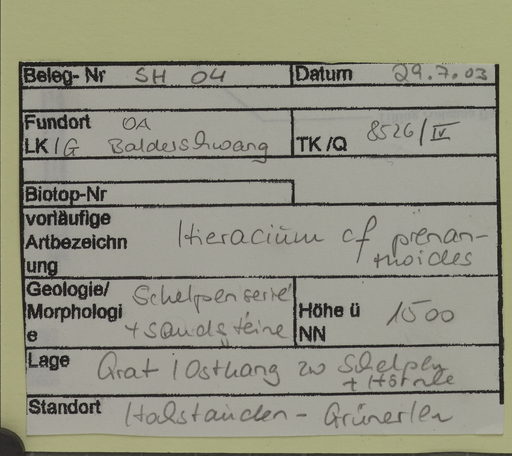 Beleg- Nr SH 04 Datum 29.7.03
Fundort OA
LK/G Balderschwang TK/Q 8526/IV
Biotop-Nr
vorläufige
Artbezeichn Hieracium cf prenan-
ung thoides
Geologie/ Schelpenserie
Morphologi Höhe ü 1500
e + Sandsteine NN
Lage Grat / Osthang zw Schelpen
+ Hörnle
Standort Hochstauden - Grünerlen